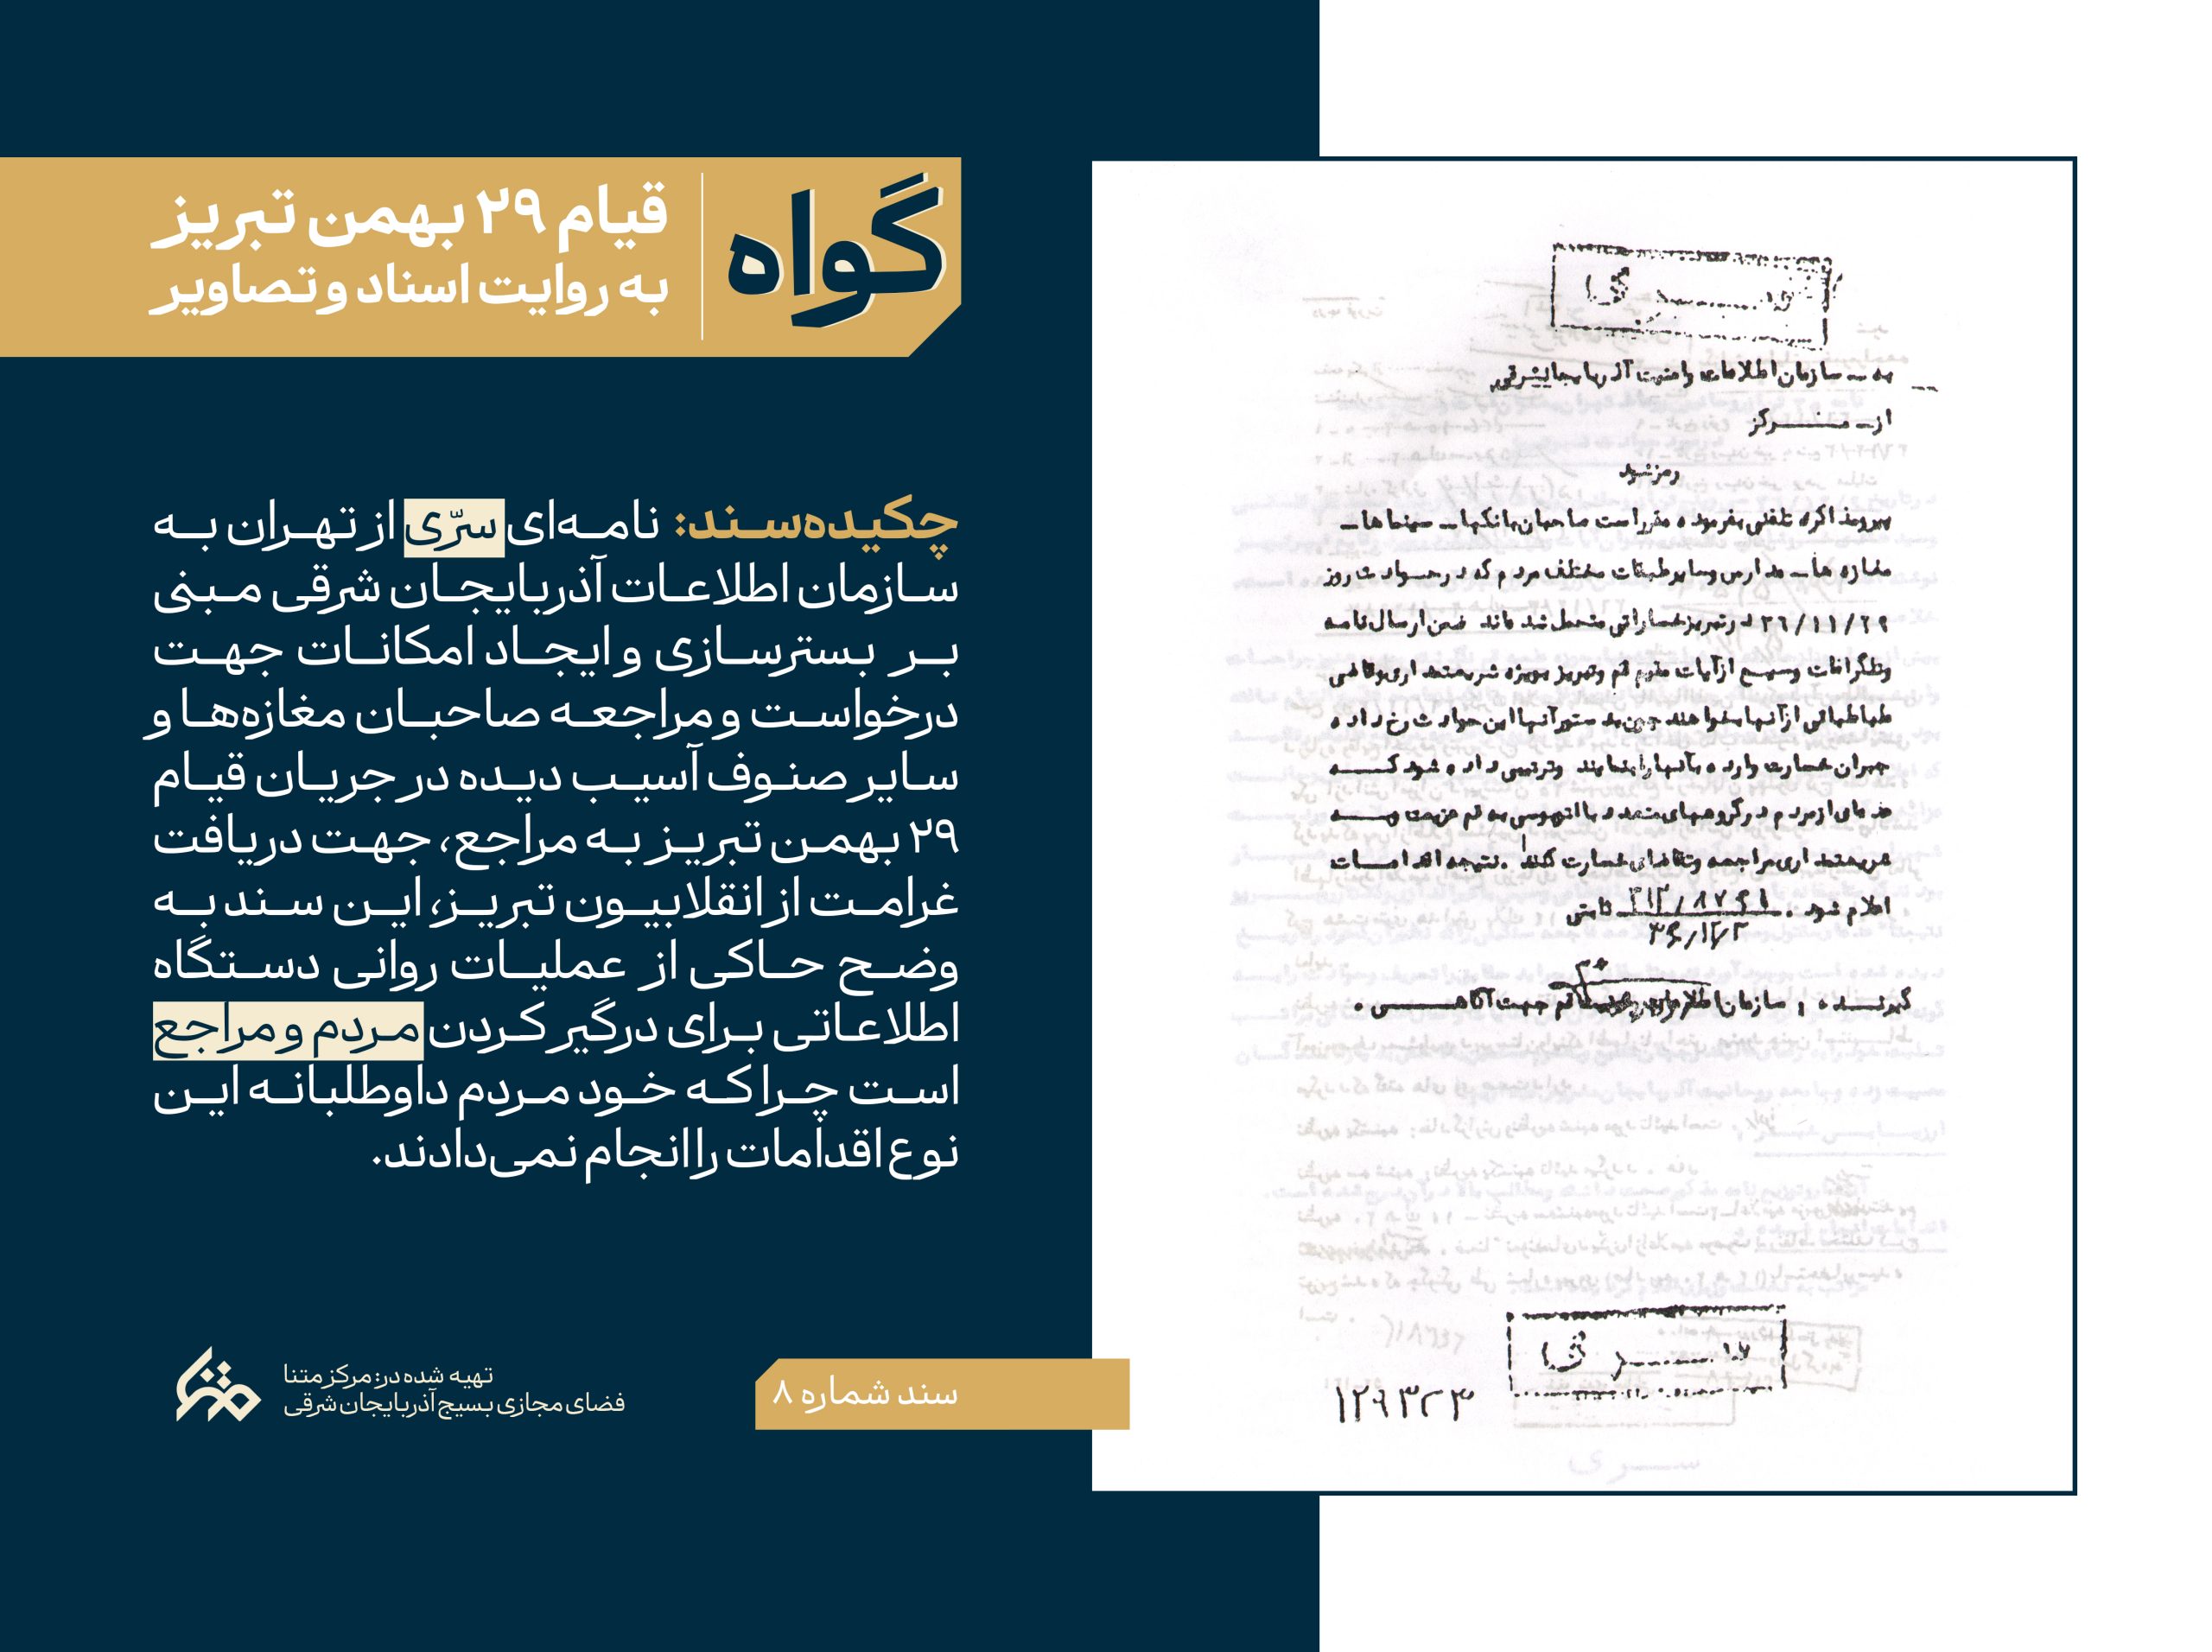 گواه
قیام ۲۹ بهمن تبریز
به روایت اسناد و تصاویر
چکیده‌سند: نامه‌ای سرّی از تهران به
سازمان اطلاعات آذربایجان شرقی مبنی
بر بسترسازی و ایجاد امکانات جهت
درخواست و مراجعه صاحبان مغازه‌ها و
سایر صنوف آسیب دیده در جریان قیام
۲۹ بهمن تبریز به مراجع، جهت دریافت
غرامت از انقلابیون تبریز، این سند به
وضح حاکی از عملیات روانی دستگاه
اطلاعاتی برای درگیر کردن مردم و مراجع
است چرا که خود مردم داوطلبانه این
نوع اقدامات را انجام نمی‌دادند.
سند شماره ۸
تهیه شده در: مرکز متنا
فضای مجازی بسیج آذربایجان شرقی
متنا
به – سازمان اطلاعات و امنیت آذربایجانشرقی
از – مرکز
رمز شود
پیرو مذاکره تلفنی بفرموده مقرر است صاحبان بانکها – سینماها –
مغازه ها – مدارس و سایر طبقات مختلف مردم که در حوادث روز
۳۶/۱۱/۲۹ در تبریز خساراتی متحمل شده‌اند ضمن ارسال نامه
و تلگرافات وسیع از آیات مقیم قم و تبریز بویژه شریعتمداری و قاضی
طباطبائی از آنها بخواهند چون بدستور آنها این حوادث رخ داده
جبران خسارت وارده بآنها را بنمایند و ترتیبی داده شود که
عده‌ای از مردم در گروههای متعدد با اتوبوس به قم عزیمت و به
شریعتمداری مراجعه و تقاضای خسارت کنند. نتیجه اقدامات
اعلام شود. ثابتی
گیرنده: سازمان اطلاعات و امنیت قم جهت آگاهی.